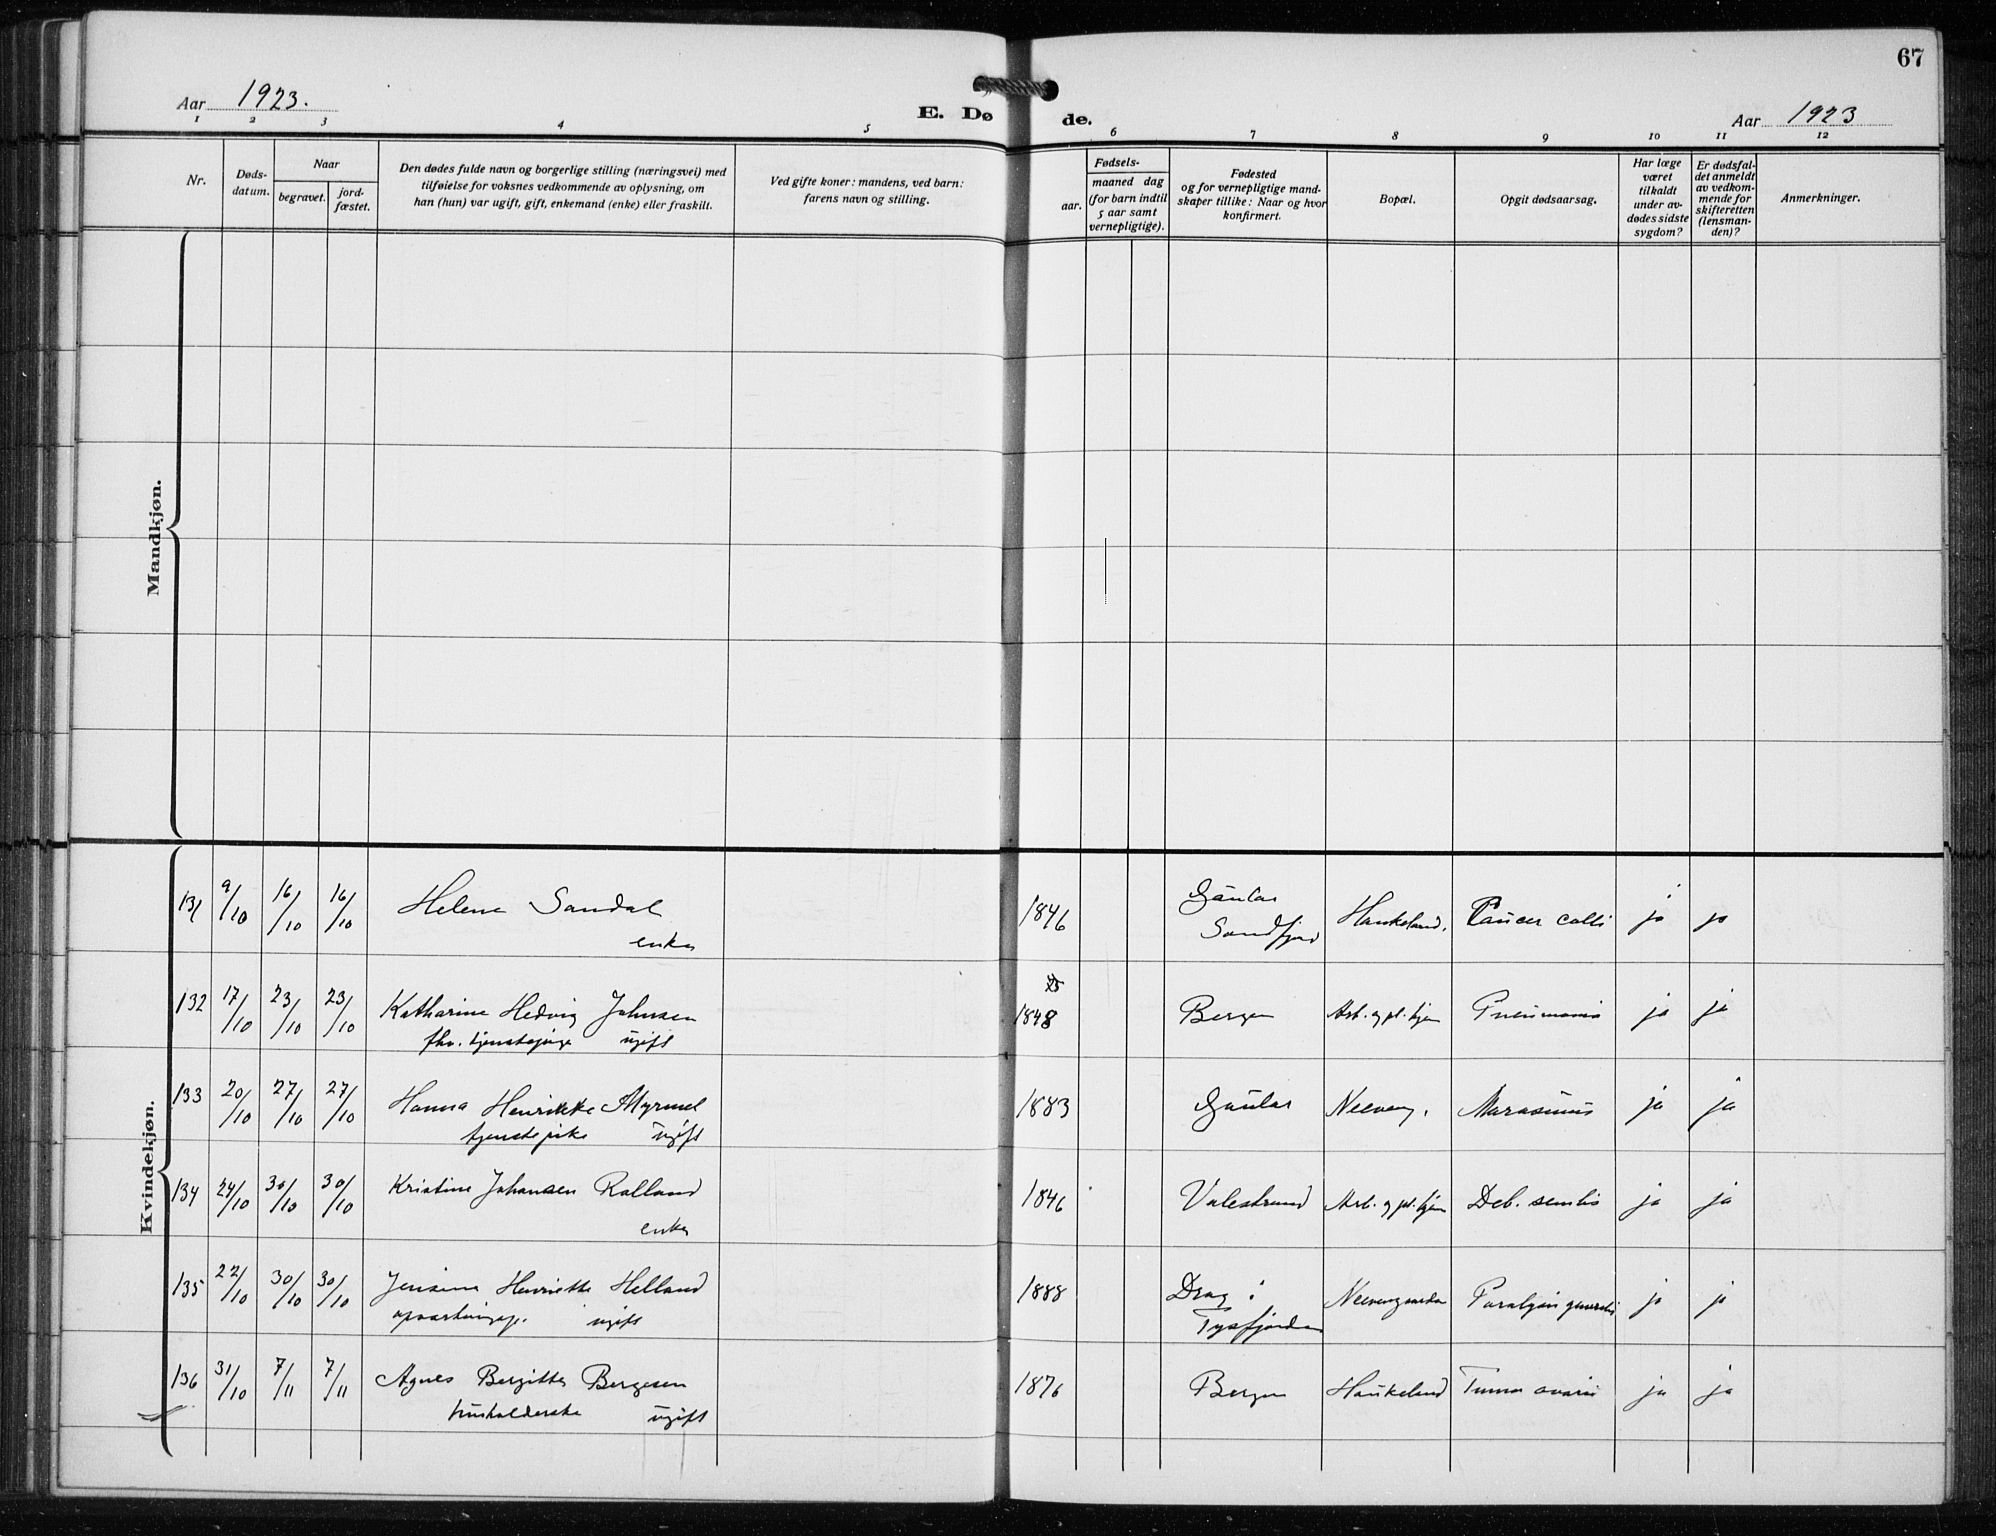 67
Aar 1923.
E. Dø de.
Aar 1923
1 2 3 4 5 6 7 8 9 10 11 12
Nr.
Døds-
datum.
Naar
begravet.
jord-
fæstet.
Den dødes fulde navn og borgerlige stilling (næringsvei) med
tilføielse for voksnes vedkommende av oplysning, om
han (hun) var ugift, gift, enkemand (enke) eller fraskilt.
Ved gifte koner: mandens, ved barn:
farens navn og stilling.
aar.
Fødsels-
maaned dag
(for barn indtil
5 aar samt
vernepligtige).
Fødested
og for vernepligtige mand-
skaper tillike: Naar og hvor
konfirmert.
Bopæl.
Opgit dødsaarsag.
Har læge
været
tilkaldt
under av-
dødes sidste
sygdom?
Er dødsfal-
det anmeldt
av vedkom-
mende for
skifteretten
(lensman-
den)?
Anmerkninger.
Mandkjøn.
Kvindekjøn.
131 9/10 16/10 16/10 Helene Sandal 1846 Gaular Haukeland. Cancer colli ja ja
enke Søndfjord
132 17/10 23/10 23/10 Katharine Hedvig Johnsen 1848 Bergen Arb. og pl. hjem Pneumonia ja ja
fhv. tjenestepige ugift
133 20/10 27/10 27/10 Hanna Henrikke Myrmel 1883 Gaular Neeveng. Marasmus ja ja
tjenestepike ugift
134 24/10 30/10 30/10 Kristine Johansen Rolland 1846 Valestrand Arb. og pl. hjem Deb. senilis ja ja
enke
135 22/10 30/10 30/10 Jensine Henriette Helland 1888 Drag i Neevengaarden Paralysis generalis ja ja
opvartningsp. ugift Tysfjorden
136 31/10 7/11 7/11 Agnes Bergitte Bergesen 1876 Bergen Haukeland Tumor ovarii ja ja
husholderske ugift